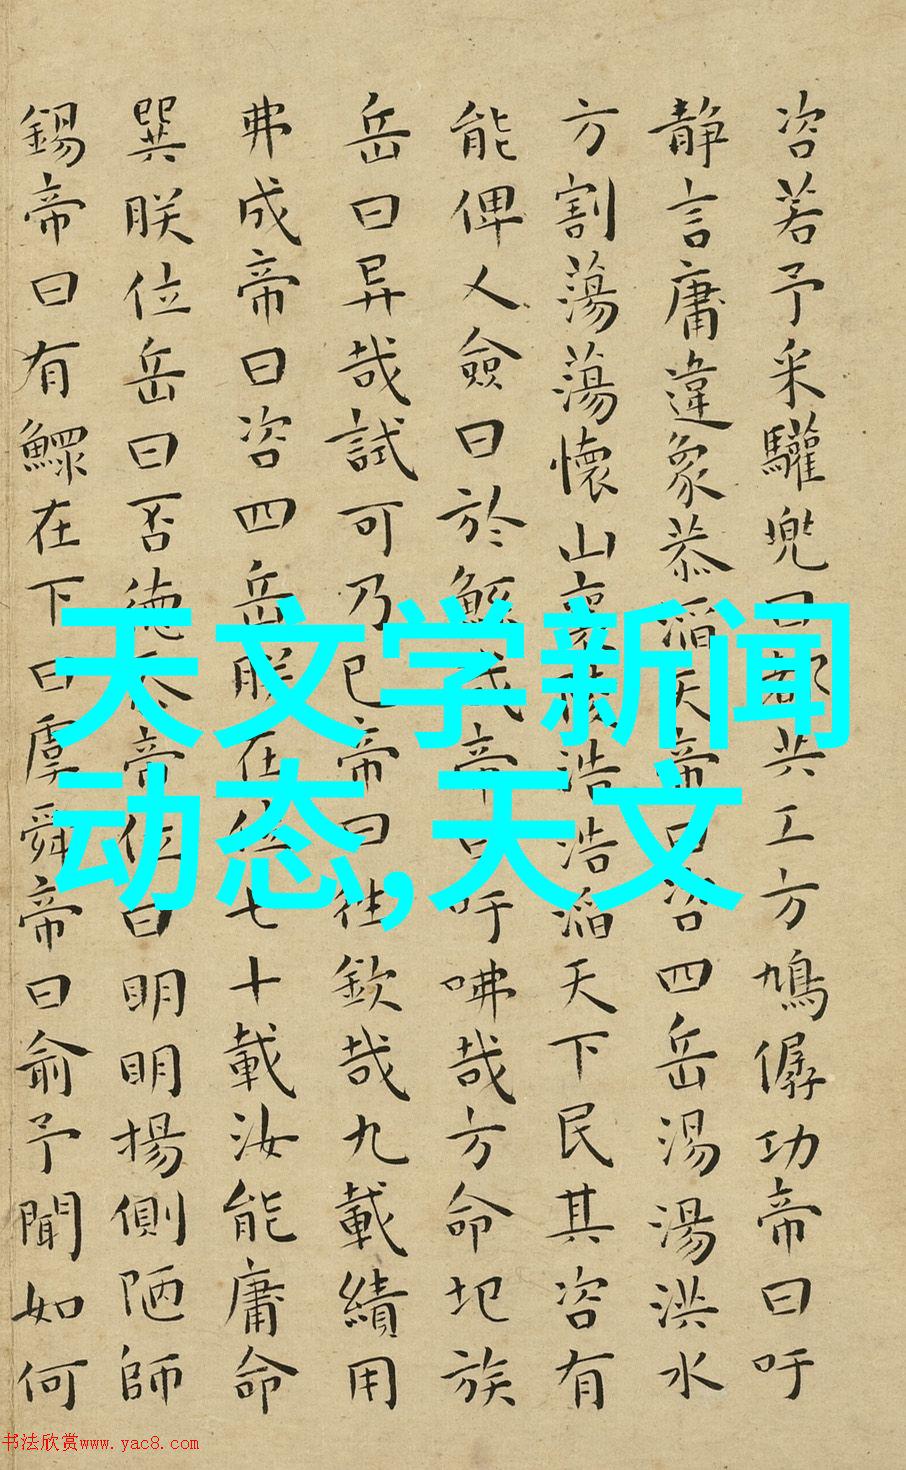 咨若予采驩兜曰都共工方鳩僝功帝曰吁
静言庸違象恭滔天帝曰咨四岳湯湯洪水
方割蕩蕩懷山襄陵浩浩滔天下民其咨有
能俾乂僉曰於鯀哉帝曰吁咈哉方命圮族
岳曰异哉試可乃已帝曰往欽哉九載績用
弗成帝曰咨四岳朕在位七十載汝能庸命
巽朕位岳曰否德忝帝位曰明明揚側陋師
錫帝曰有鰥在下曰虞舜帝曰俞予聞如何
天文学新闻
动态,天文
书法欣赏www.yac8.com